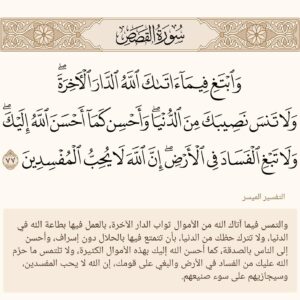 سُورَةُ القَصَصِ
وَٱبۡتَغِ فِيمَآ ءَاتَىٰكَ ٱللَّهُ ٱلدَّارَ ٱلۡأٓخِرَةَۖ
وَلَا تَنسَ نَصِيبَكَ مِنَ ٱلدُّنۡيَاۖ وَأَحۡسِن كَمَآ أَحۡسَنَ ٱللَّهُ إِلَيۡكَۖ
وَلَا تَبۡغِ ٱلۡفَسَادَ فِي ٱلۡأَرۡضِۖ إِنَّ ٱللَّهَ لَا يُحِبُّ ٱلۡمُفۡسِدِينَ ٧٧
التفسير الميسر
والتمس فيما آتاك الله من الأموال ثواب الدار الآخرة، بالعمل فيها بطاعة الله في
الدنيا، ولا تترك حظك من الدنيا، بأن تتمتع فيها بالحلال دون إسراف، وأحسن
إلى الناس بالصدقة، كما أحسن الله إليك بهذه الأموال الكثيرة، ولا تلتمس ما حرَّم
الله عليك من الفساد في الأرض والبغي على قومك، إن الله لا يحب المفسدين،
وسيجازيهم على سوء صنيعهم.